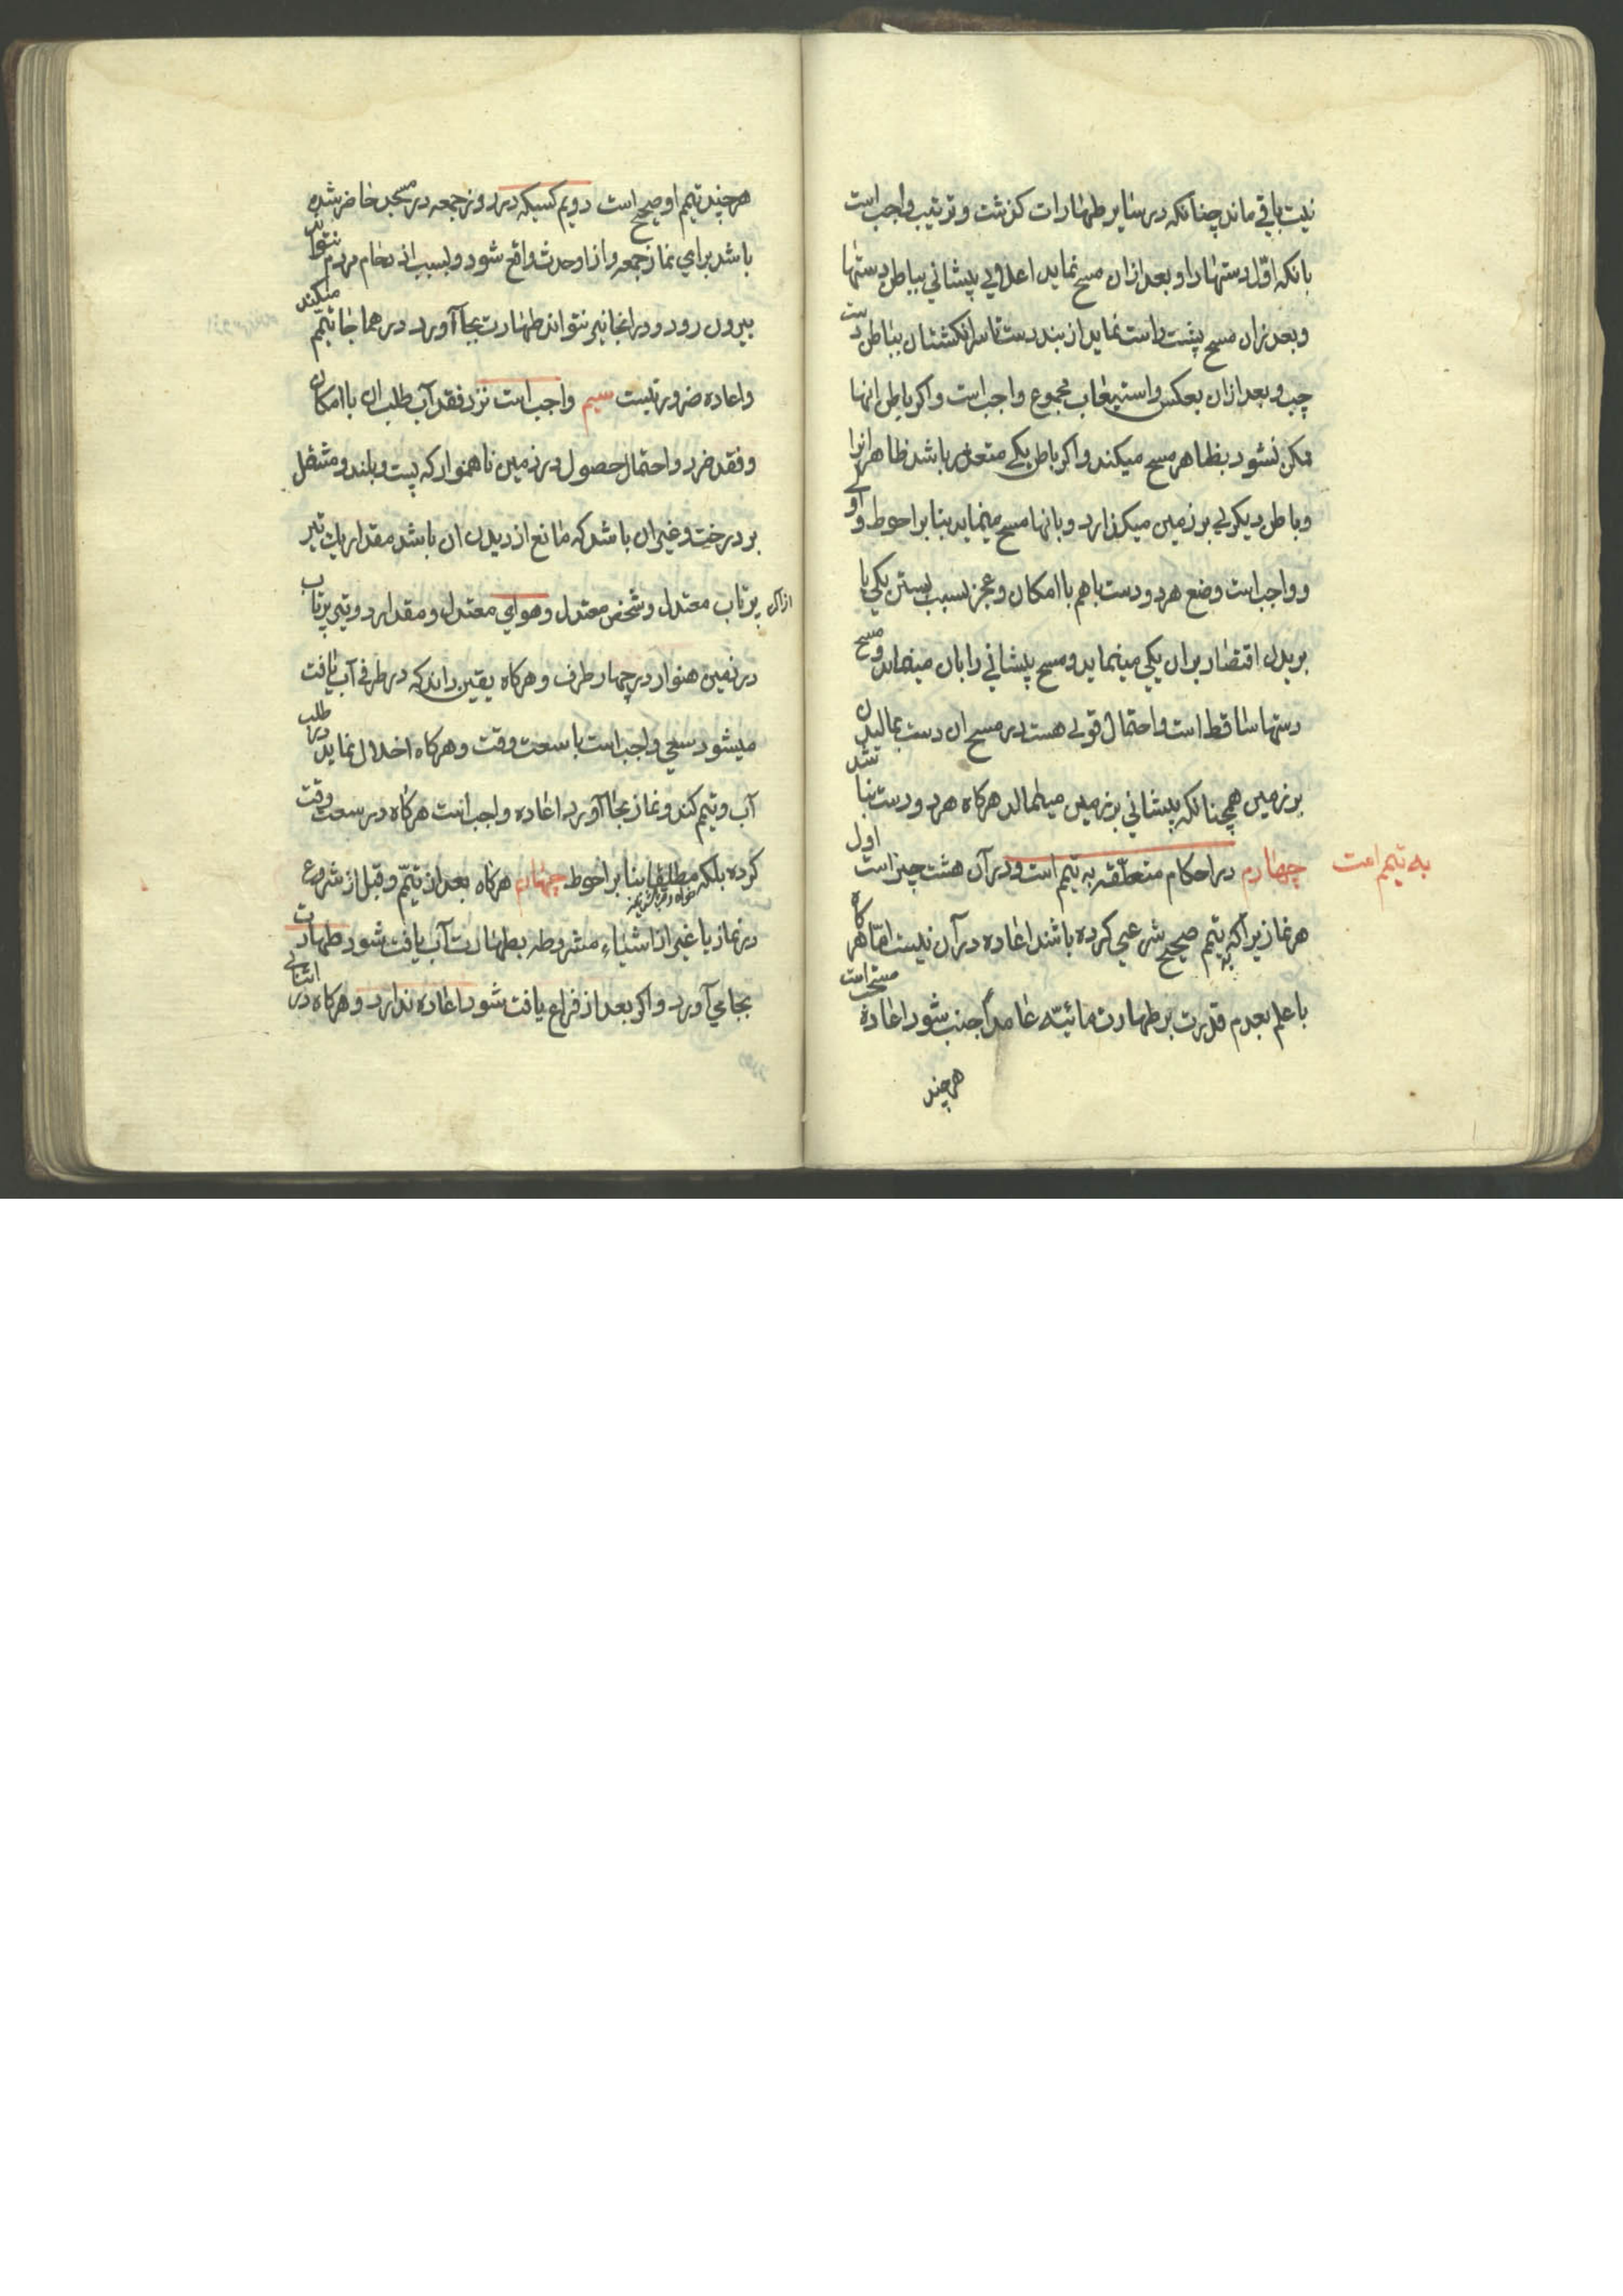 نیت باقی ماند چنانکه در سایر طهارات کذشت و ترتیب واجب است
بانکه اول دستها را و بعد ازان مسح نماید اعلای پیشانی بباطن دستها
و بعد ازان مسح پشت راست نماید از بند دست تا سر انکشتان بباطن دست
چپ و بعد ازان بعکس و استیعاب مجموع واجب است و اکر باطن انها
ممکن نشود بظاهر مسح میکند و اکر باطن یکی متعذر باشد ظاهر انرا
و باطن دیکری بر زمین میکذارد و بانها مسح مینماید بنا بر احوط و اولی
و واجب است وضع هر دو دست با هم با امکان و عجز بسبب بستن یکی یا
بریدن اقتصار بران یکی مینماید و مسح پیشانی را بان مینماید و مسح
دستها ساقط است و احتمال قوی هست در مسح ان دست بمالیدن
بر زمین همچنانکه پیشانی بر زمین میمالد هرکاه هر دو دست بنا شد
چهارم در احکام متعلقه به تیمم است و در آن هشت چیز است اول
به تیمم است
هر نماز یرا که به تیمم صحیح شرعی کرده باشند اعاده در آن نیست اما هرکاه
با علم بعدم قدرت بر طهارت مائیّه عامداً جنب شود اعاده مستحب است
هرچند
هرچند تیمم او صحیح است دویم کسیکه در روز جمعه در مسجد حاضر شده
باشد برای نماز جمعه و از او حدث واقع شود و بسبب ازدحام مردم نتواند
بیرون رود و در انجا نیز نتواند طهارت بجا آورد در همانجا تیمّم میکند
و اعاده ضرور نیست سیم واجب است نزد فقد آب طلب ان با امکان
و فقد ضرر و احتمال حصول در زمین ناهموار که پست و بلند و مشتمل
بر درخت و غیر ان باشد که مانع از دیدن ان باشد مقدار یک تیر
پرتاب معتدل و شخص معتدل و هوای معتدل و مقدار دو تیر پرتاب
در زمین هموار در چهار طرف و هرکاه یقین داند که در طرفی آب یافت
میشود سعی واجب است با سعت وقت و هرکاه اخلال نماید در طلب
آب و تیمم کند و نماز بجا آورد اعاده واجب است هرکاه در سعت وقت
کرده بلکه مطلقا بنا بر احوط چهارم هرکاه بعد از تیمّم و قبل از شروع
در نماز یا غیر از اشیاء مشروطه بطهارت آب یافت شود طهارت
بجا می آورد و اکر بعد از فراغ یافت شود اعاده ندارد و هرکاه در اثنای